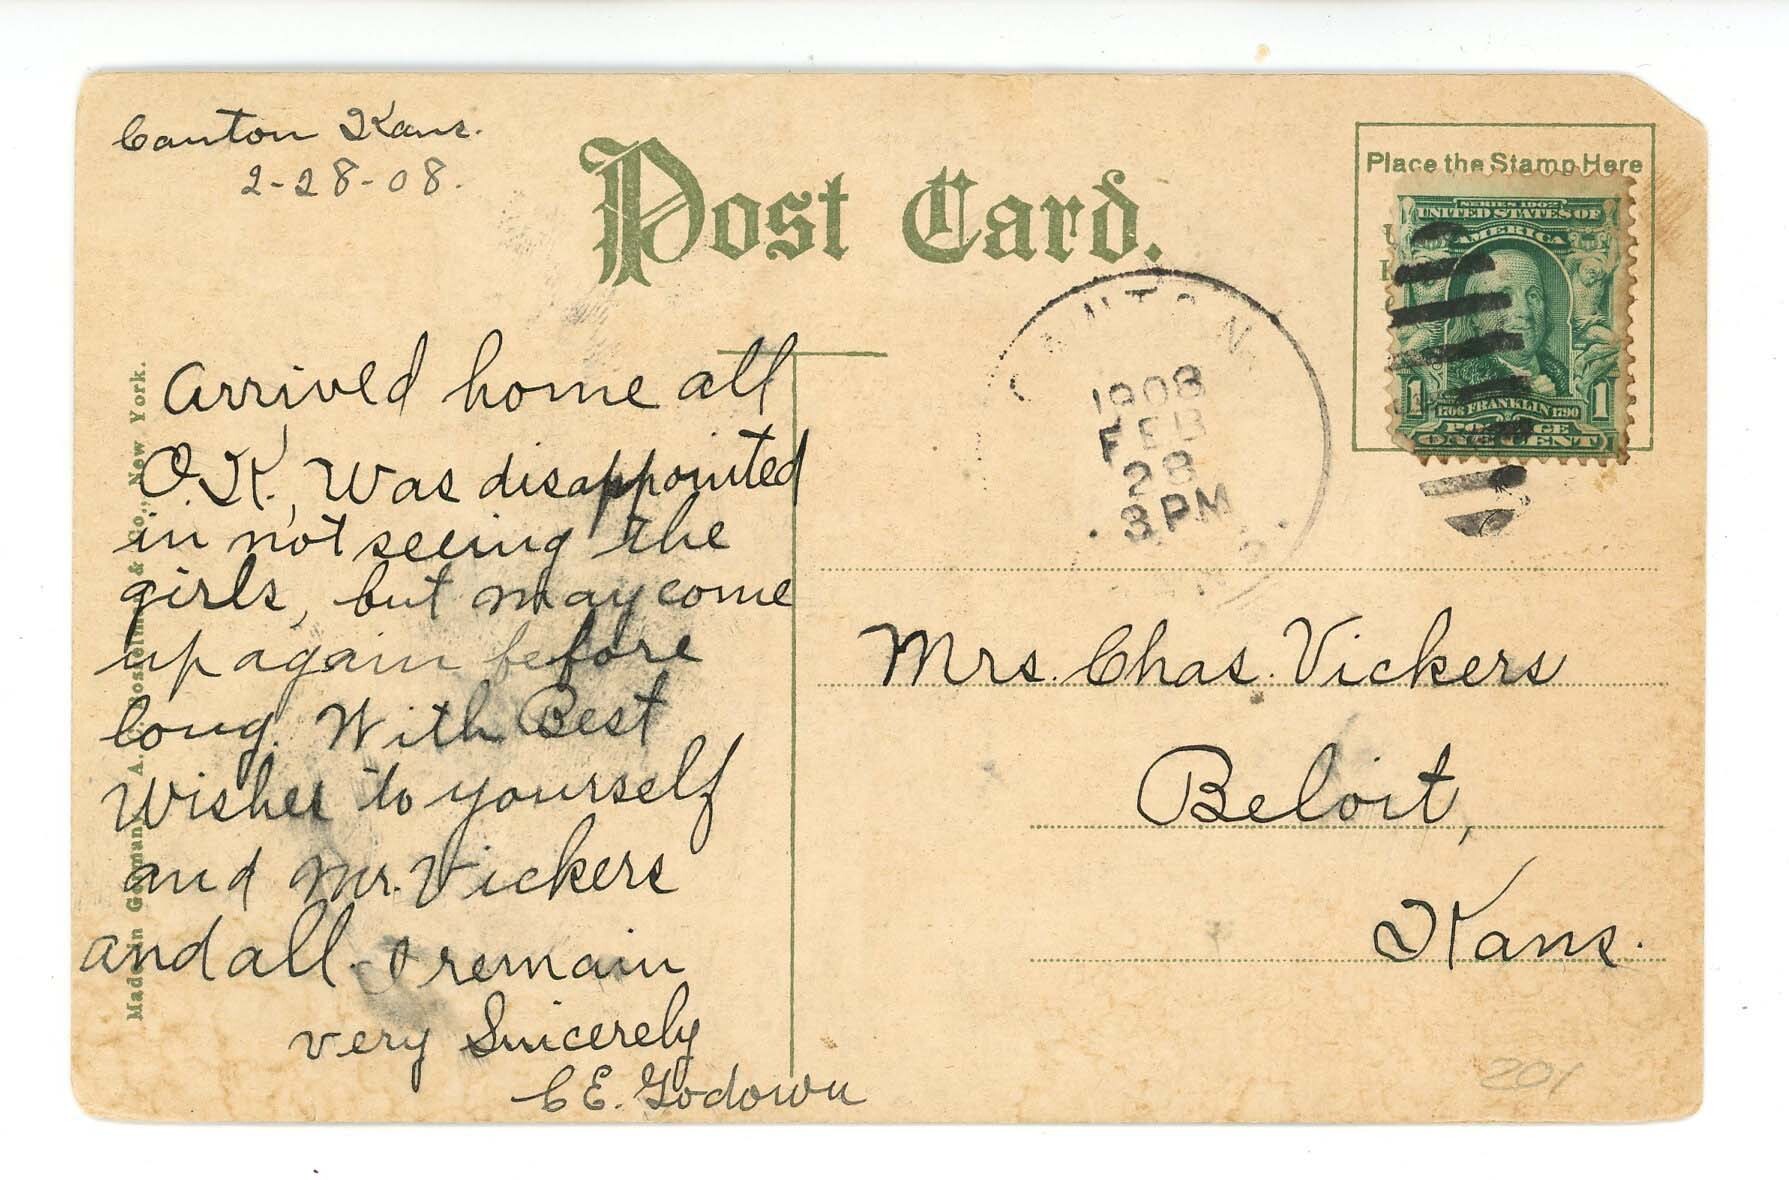 Canton Kans.
2-28-08.
Post Card.
Place the Stamp Here
SERIES 1902
UNITED STATES OF
AMERICA
1 1706 FRANKLIN 1790 1
POSTAGE
ONE CENT
CANTON
1908
FEB
28
3 PM
Arrived home all
O.K., Was disappointed
in not seeing the
girls, but may come
up again before
long. With Best
Wishes to yourself
and Mr. Vickers
and all. I remain
very Sincerely
C E. Godown
Mrs. Chas. Vickers
Beloit,
Kans.
Made in Germany A. & Co., New York.
201